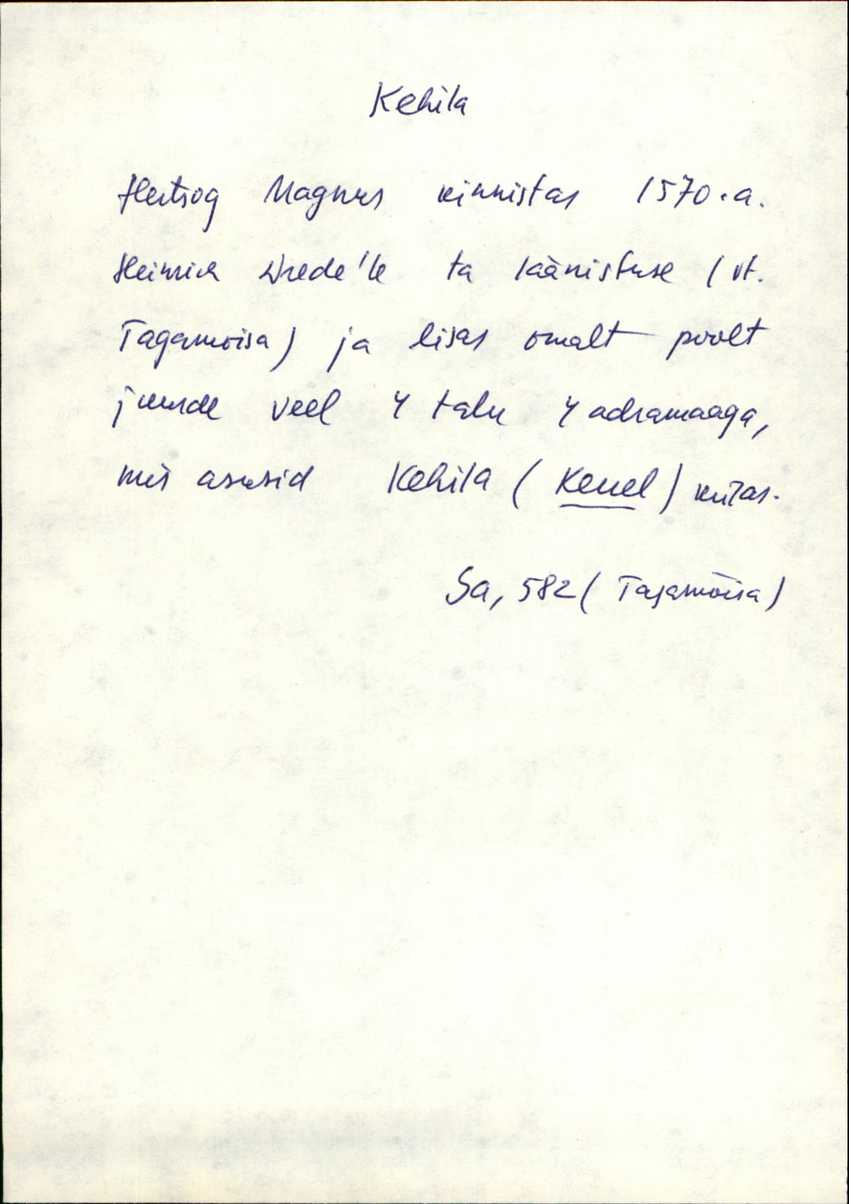 Kehila
Hertsog Magnus kinnistas 1570.a.
Heinrich Wrede'le ta läänistuse (vt.
Tagamõisa) ja lisas omalt poolt
juurde veel 4 talu 4 adramaaga,
mis asusid Kehila (Keuel) külas.
Sa, 582 (Tagamõisa)